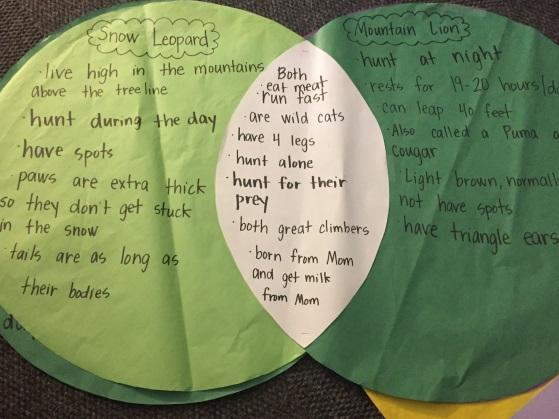 Snow Leopard
· live high in the mountains
above the tree line
· hunt during the day
· have spots
· paws are extra thick
so they don't get stuck
in the snow
· tails are as long as
their bodies
Both
· eat meat
· run fast
· are wild cats
· have 4 legs
· hunt alone
· hunt for their
prey
· both great climbers
· born from Mom
and get milk
from Mom
Mountain Lion
· hunt at night
· rests for 19-20 hours/d
· can leap 40 feet
· Also called a Puma
cougar
· Light brown,
not have spots
· have triangle ears